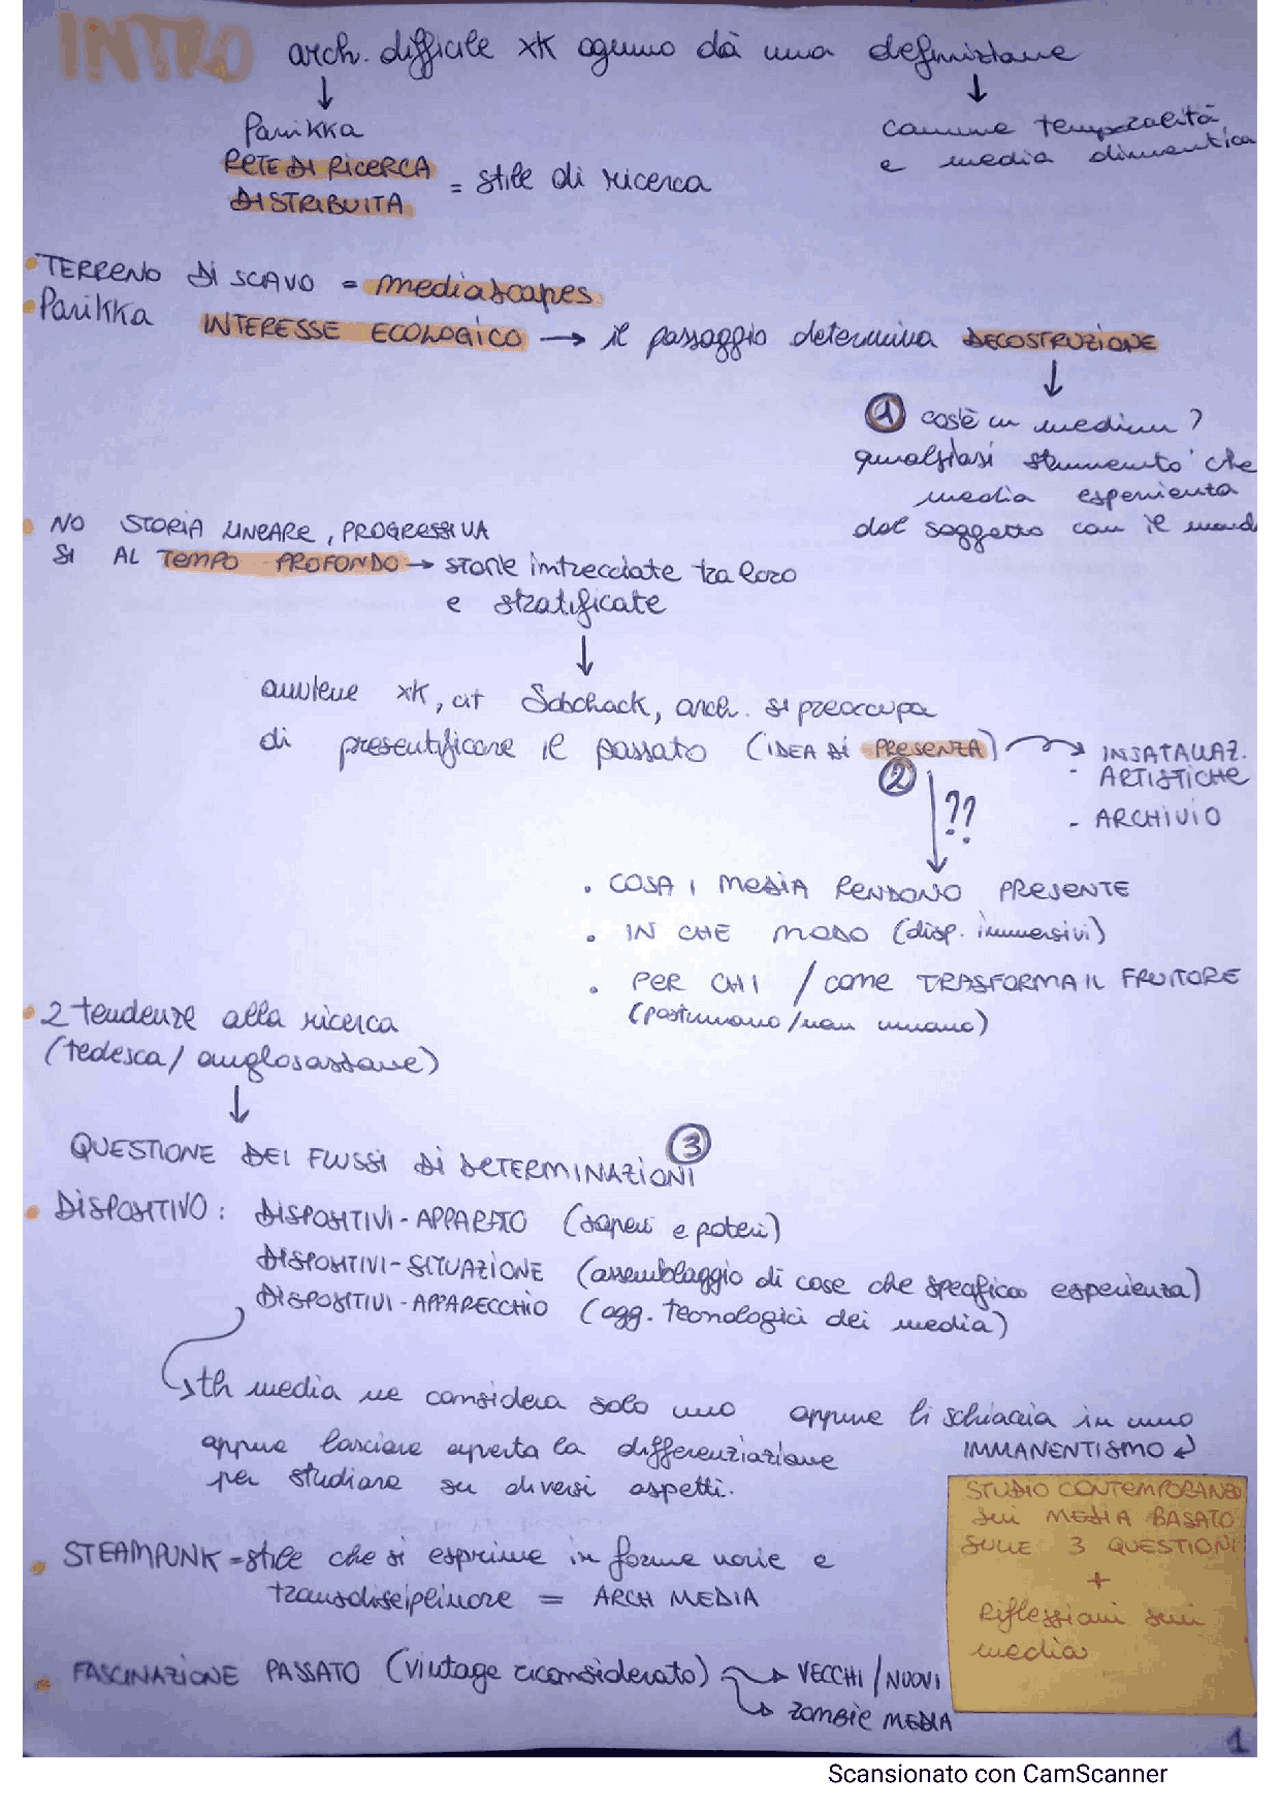 INTRO
arch. difficile xK ognuno dà una definizione
↓ ↓
Parikka
comune temporalità
e media dimentica
RETE DI RICERCA
DISTRIBUITA
= stile di ricerca
• TERRENO DI SCAVO = mediascapes
• Parikka INTERESSE ECOLOGICO → il passaggio determina DECOSTRUZIONE
↓
① cos'è un medium?
qualsiasi strumento che
media esperienza
del soggetto con il mond
• NO STORIA LINEARE, PROGRESSIVA
SI AL TEMPO PROFONDO → storie intrecciate tra loro
e stratificate
↓
avviene xK, cit Sobchack, arch. si preoccupa
di presentificare il passato (IDEA DI PRESENZA) → INSATALLAZ.
- ARTISTICHE
- ARCHIVIO
② ??
• COSA I MEDIA RENDONO PRESENTE
• IN CHE MODO (disp. immersivi)
• PER CHI / come TRASFORMA IL FRUITORE
(postumano/non umano)
• 2 tendenze alla ricerca
(tedesca/anglosassone)
↓
QUESTIONE DEI FLUSSI DI DETERMINAZIONI ③
• DISPOSITIVO: DISPOSITIVI-APPARATO (saperi e poteri)
DISPOSITIVI-SITUAZIONE (assemblaggio di cose che specifica esperienza)
DISPOSITIVI-APPARECCHIO (ogg. tecnologici dei media)
th media ne considera solo uno oppure li schiaccia in uno
IMMANENTISMO
oppure lasciare aperta la differenziazione
per studiare su diversi aspetti.
STUDIO CONTEMPORANEO
sui MEDIA BASATO
SULLE 3 QUESTIONI
+
Riflessioni sui
media
• STEAMPUNK = stile che si esprime in forme varie e
transdisciplinare = ARCH MEDIA
• FASCINAZIONE PASSATO (vintage riconsiderato) → VECCHI/NUOVI
→ ZOMBIE MEDIA
1
Scansionato con CamScanner